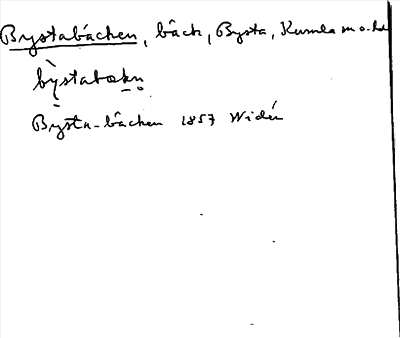 Bystabäcken, bäck, Bysta, Kumla sn o. hd
bỳstabækn̥
Bysta-bäcken 1857 Widén